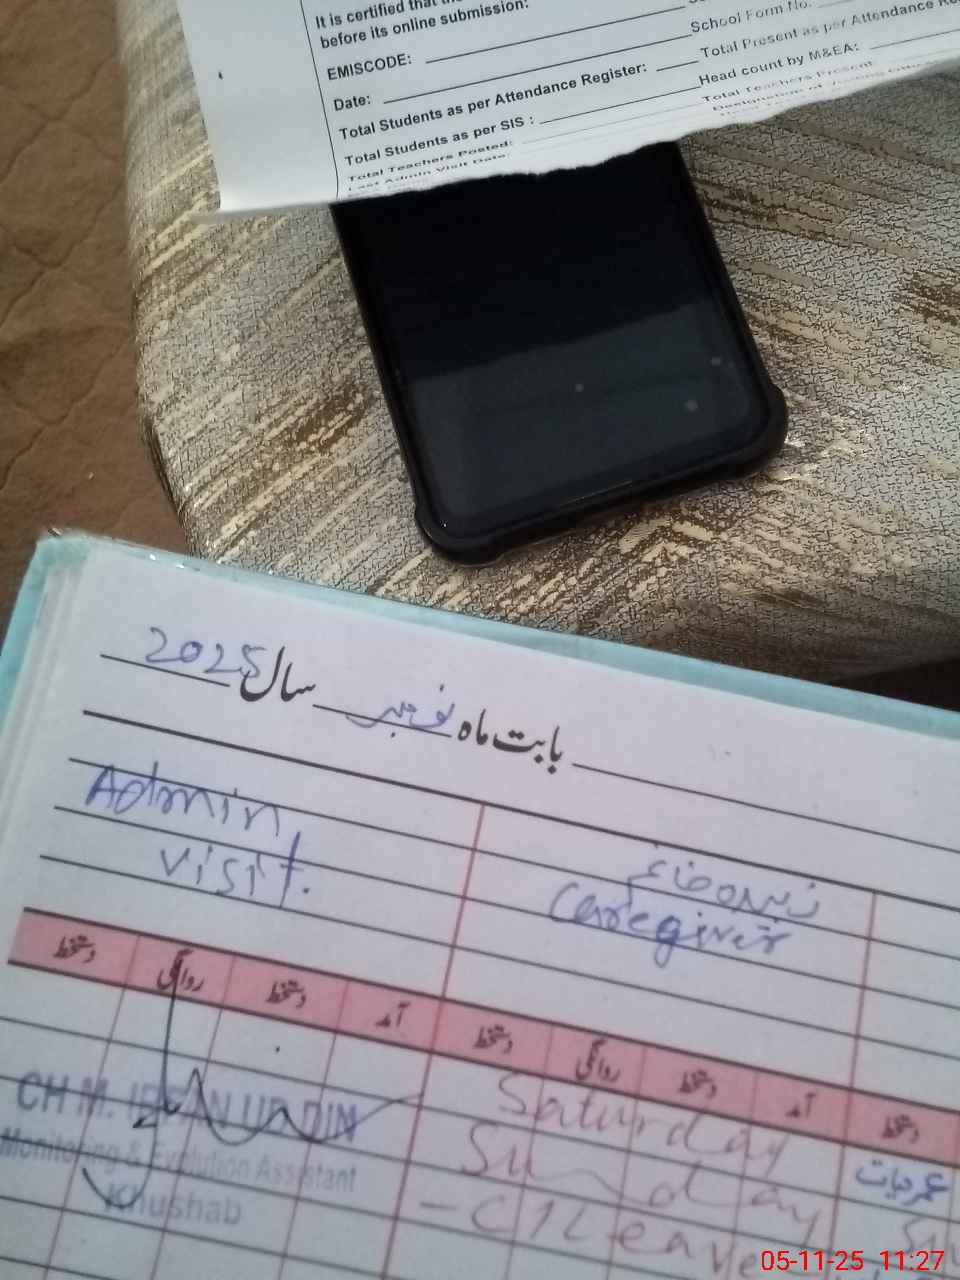 It is certified that the
before its online submission:
EMISCODE:
School Form No.
Date:
Total Present as per Attendance Re
Total Students as per Attendance Register:
Head count by M&EA:
Total Students as per SIS :
Total Teachers Present:
Total Teachers Posted:
Last Admin Visit Date:
بابت ماہ نومبر سال 2025
Admin
visit.
Caregiver
آمد دستخط روانگی دستخط
آمد دستخط روانگی دستخط
دستخط
CH M. IRFAN UD DIN
Monitoring & Evolution Assistant
Khushab
Saturday
Sunday
Leave
05-11-25 11:27